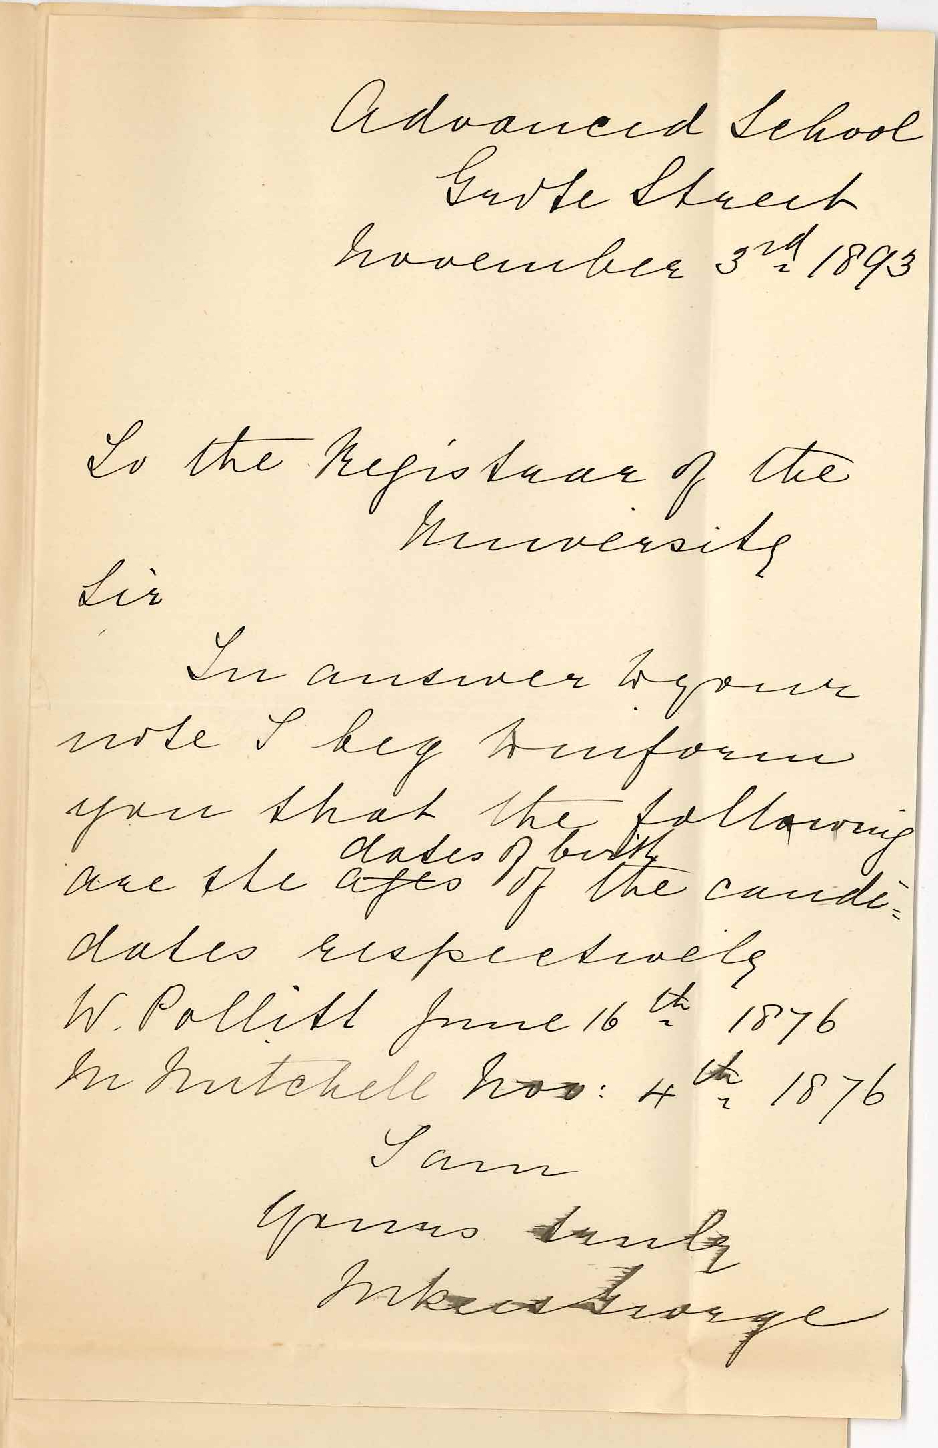 Advanced School
Grote Street
November 3rd 1893
To the Registrar of the
University
Sir
In answer to your
note I beg to inform
you that the following
dates of birth
are the ages of the candi=
dates respectively
W. Pollitt June 16th 1876
M Mitchell Nov: 4th 1876
I am
Yours truly
George